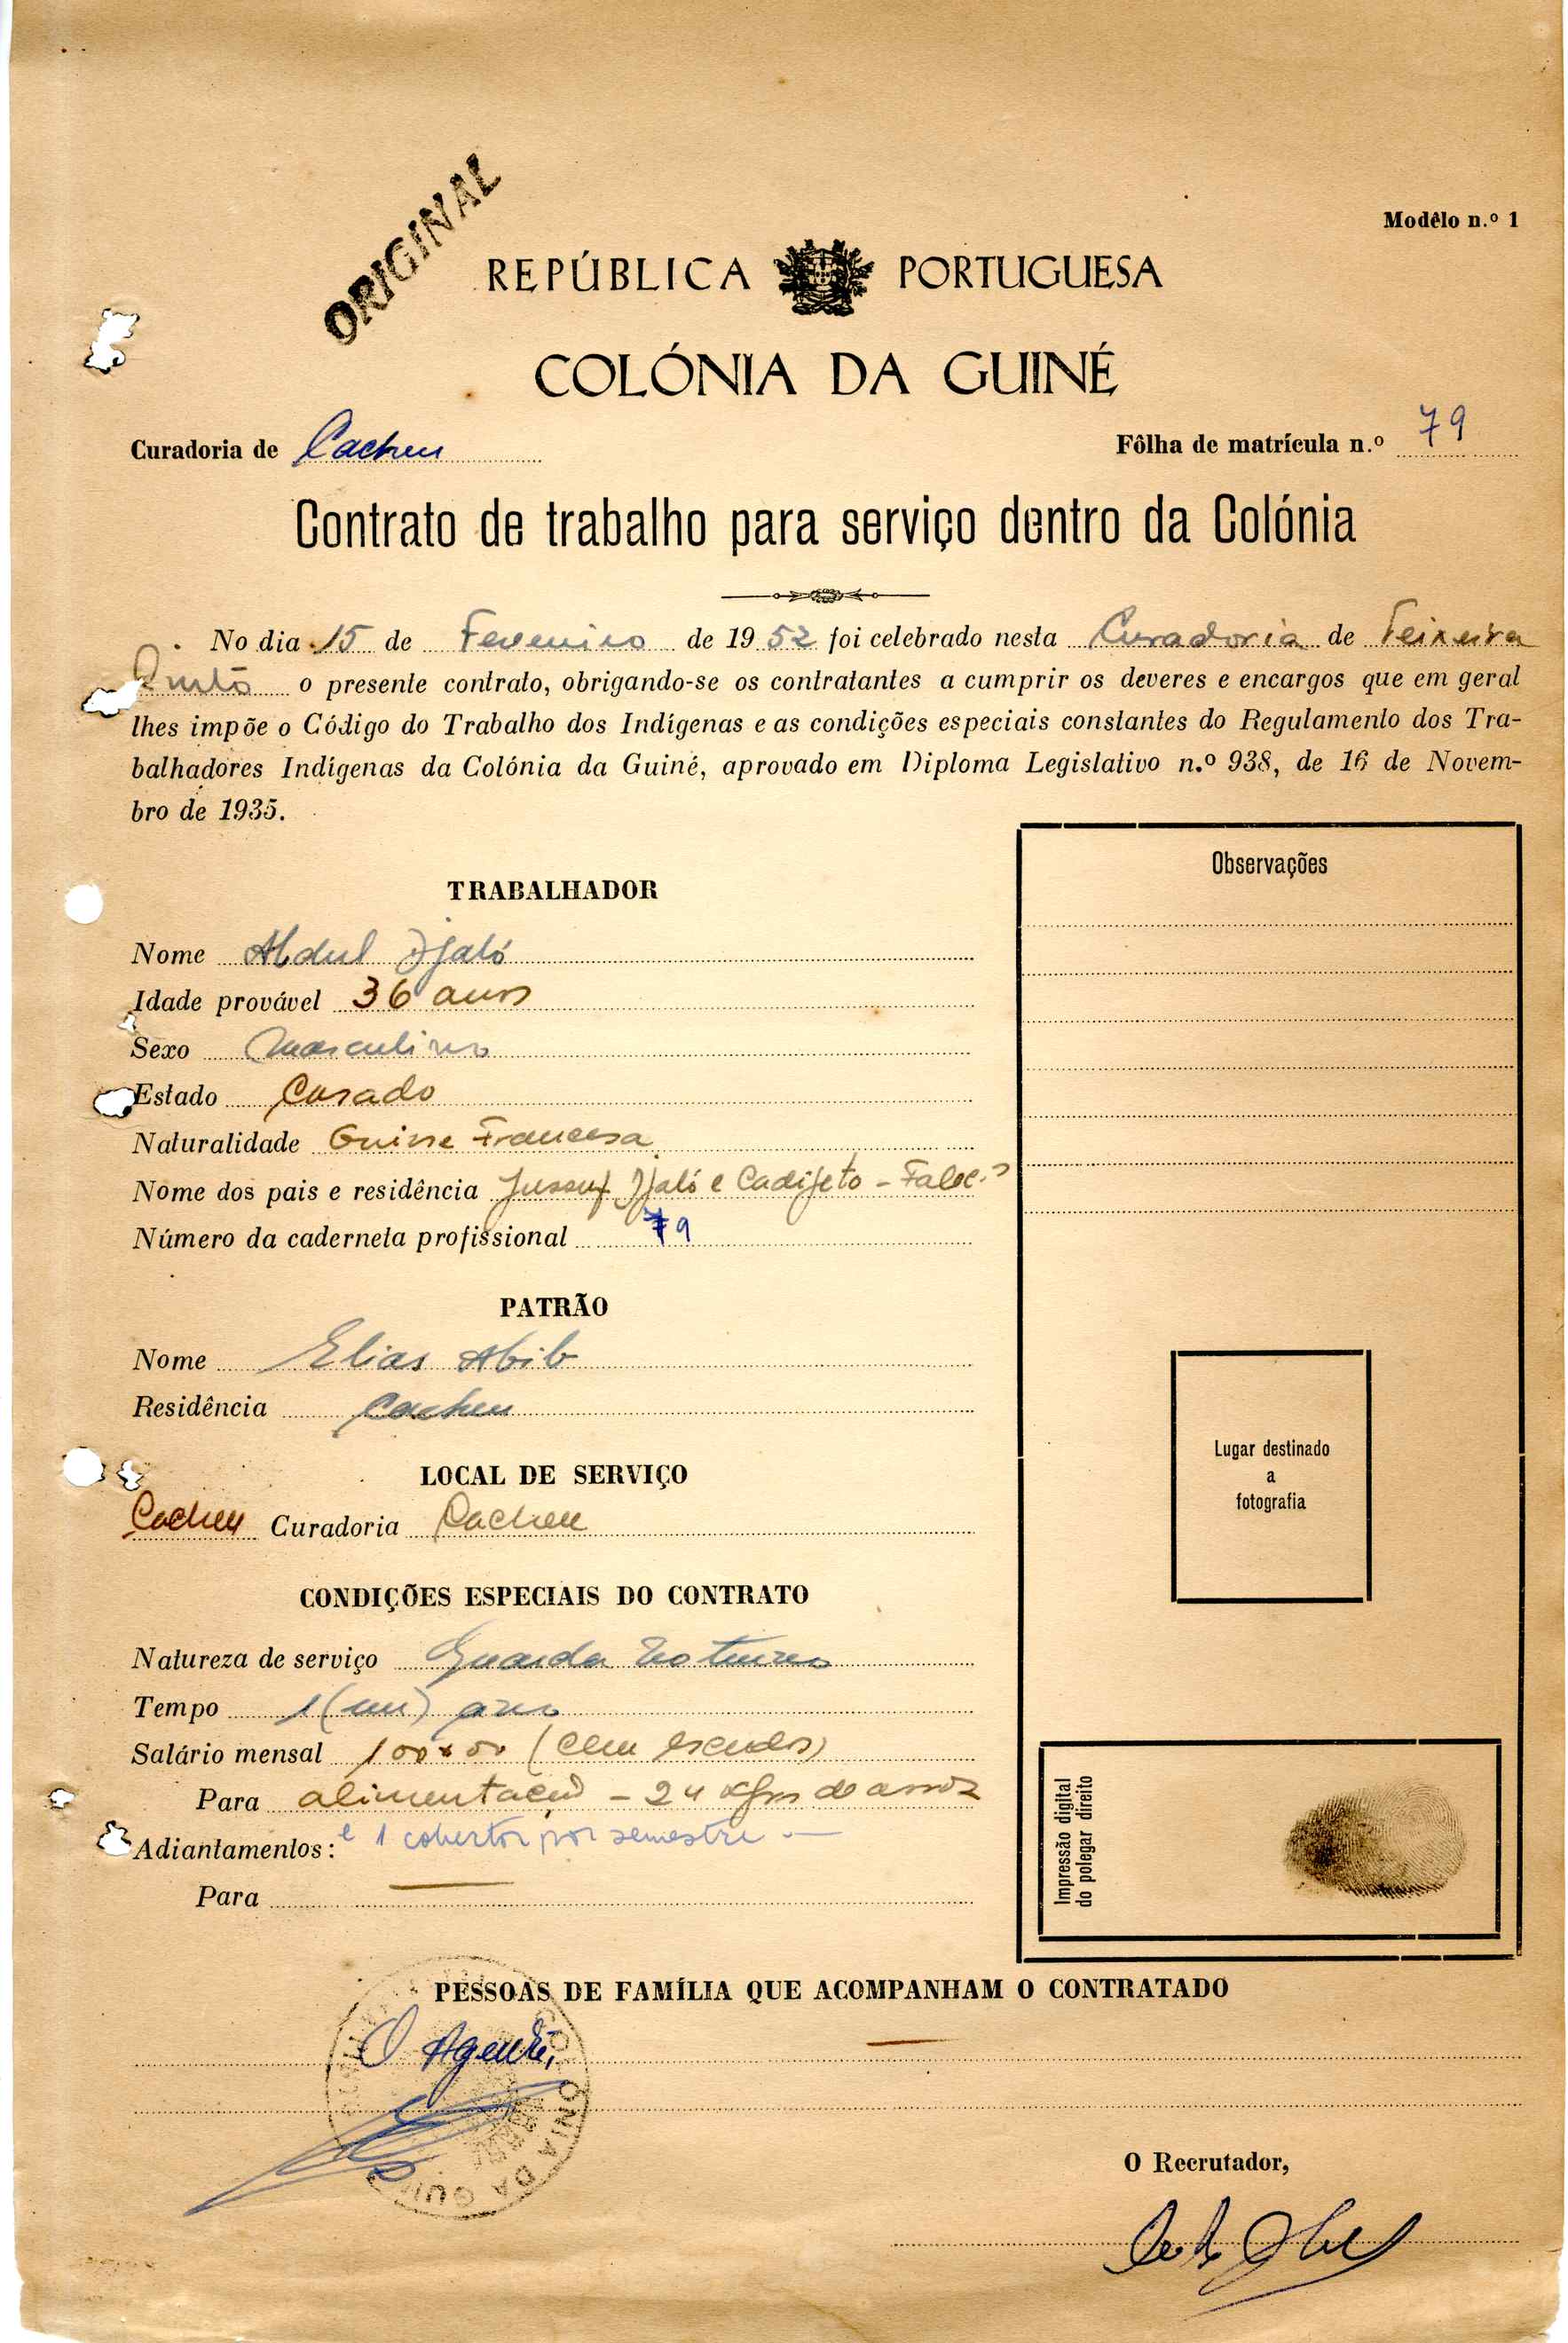 Modêlo n.º 1
ORIGINAL
REPÚBLICA PORTUGUESA
COLÓNIA DA GUINÉ
Curadoria de Cacheu
Fôlha de matrícula n.º 79
Contrato de trabalho para serviço dentro da Colónia
No dia 15 de Fevereiro de 1952 foi celebrado nesta Curadoria de Teixeira
Pinto o presente contrato, obrigando-se os contratantes a cumprir os deveres e encargos que em geral
lhes impõe o Código do Trabalho dos Indígenas e as condições especiais constantes do Regulamento dos Tra-
balhadores Indígenas da Colónia da Guiné, aprovado em Diploma Legislativo n.º 938, de 16 de Novem-
bro de 1935.
Observações
TRABALHADOR
Nome Abdul Djaló
Idade provável 36 anos
Sexo Masculino
Estado Casado
Naturalidade Guine Francesa
Nome dos pais e residência Jussuf Djaló e Cadijeto - Falec.os
Número da caderneta profissional 79
PATRÃO
Nome Elias Abib
Residência Cacheu
Lugar destinado
a
fotografia
LOCAL DE SERVIÇO
Cacheu Curadoria Cacheu
CONDIÇÕES ESPECIAIS DO CONTRATO
Natureza de serviço Guarda Noturno
Tempo 1 (um) ano
Salário mensal 100$00 (cem escudos)
Para alimentação - 24 kgrs de arroz
Adiantamentos: e 1 cobertor por semestre
Para
Impressão digital
do polegar direito
PESSOAS DE FAMÍLIA QUE ACOMPANHAM O CONTRATADO
O Agente,
COLÓNIA DA GUINÉ
O Recrutador,